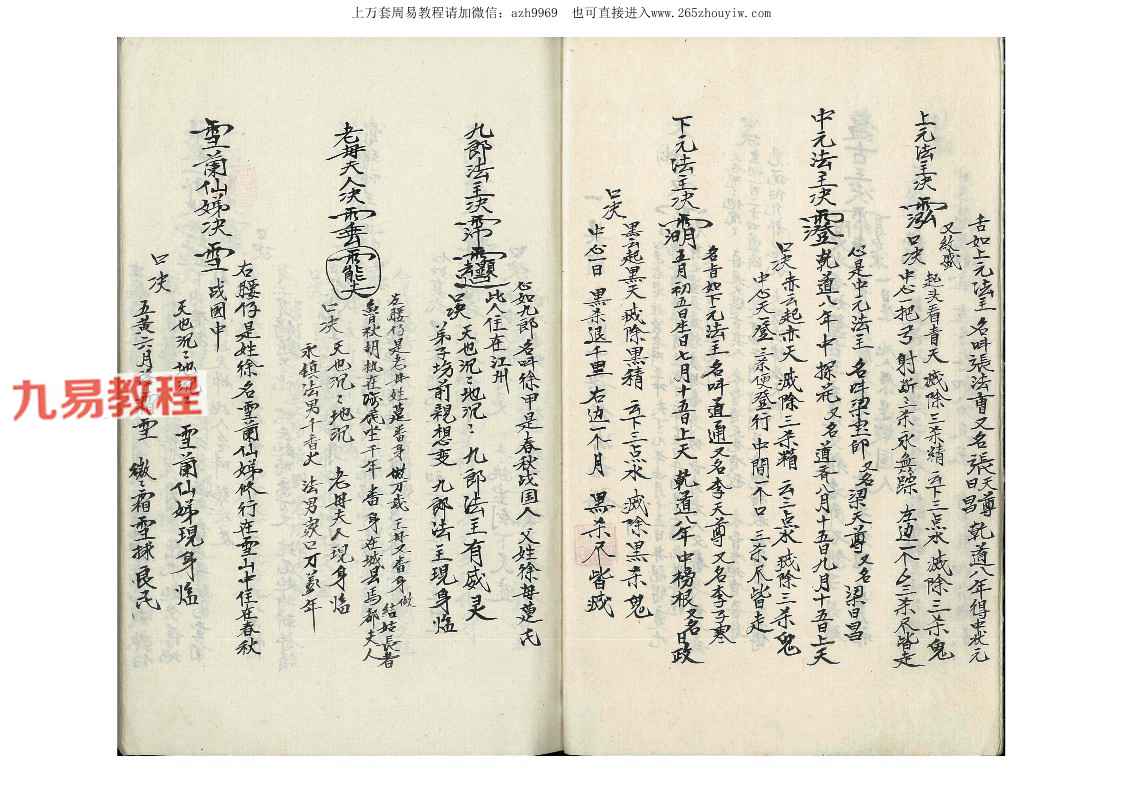 上万套周易教程请加微信：azh9969　也可直接进入www.265zhouyiw.com
舌如上元法主名叫張法曺又名張天尊日昌乾道八年得中状元
上元法主决
起头看青天 滅除三杀精 云下三点水 滅除三杀鬼
口决 中心一把弓 射断三杀永無踪 左边一个么三杀尽皆走
心是中元法主 名叫梁 又名梁天尊 又名梁日昌
中元法主决 乾道八年中探花 又名道 八月十五日九月十五日上天
口决 赤云起赤天 滅除三杀精 云三点水 滅除三杀鬼
中心天登 三杀便登行 中間一个口 三杀尽皆走
名舌如下元法主名叫道通又名李天尊又名李子寒
下元法主决 五月初五日生日七月十五日上天 乾道八年中榜根又名日政
黑云起黑天 滅除黑精 云下三点水 滅除黑杀鬼
口决 中心一日 黑杀退千里 右边一个月 黑杀尽皆滅
心如九郎名叫徐甲是春秋战国人 父姓徐母 氏
九郎法主决 此人住在江州
口决 天也沉：地沉： 九郎法主有威灵
弟子坊前親想变 九郎法主現身临
左腰仔是老母姓 番身做万 王母又番身做結姑長者
魯秋胡 在 坐千年 番身在城县馬都夫人
老母夫人决
口决 天也沉：地沉 老母夫人現身临
永鎮法男千香火 法男家口万盖年
右腰仔是姓徐名雪蘭仙娣修行在雪山中住在春秋
雪蘭仙娣决 雪 战國中
口决 天也沉：地沉 雪蘭仙娣現身临
五黄六月 雪 繳：霜雪 良民
九易教程